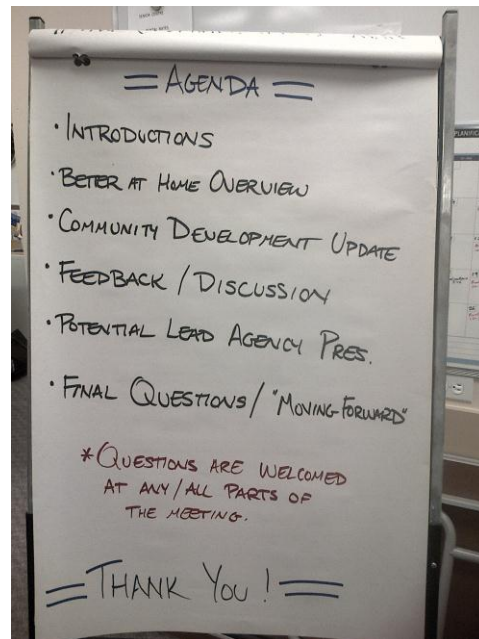 = AGENDA =
• INTRODUCTIONS
• BETER AT HOME OVERVIEW
• COMMUNITY DEVELOPMENT UPDATE
• FEEDBACK / DISCUSSION
• POTENTIAL LEAD AGENCY PRES.
• FINAL QUESTIONS / "MOVING FORWARD"
* QUESTIONS ARE WELCOMED
AT ANY / ALL PARTS OF
THE MEETING.
= THANK YOU ! =